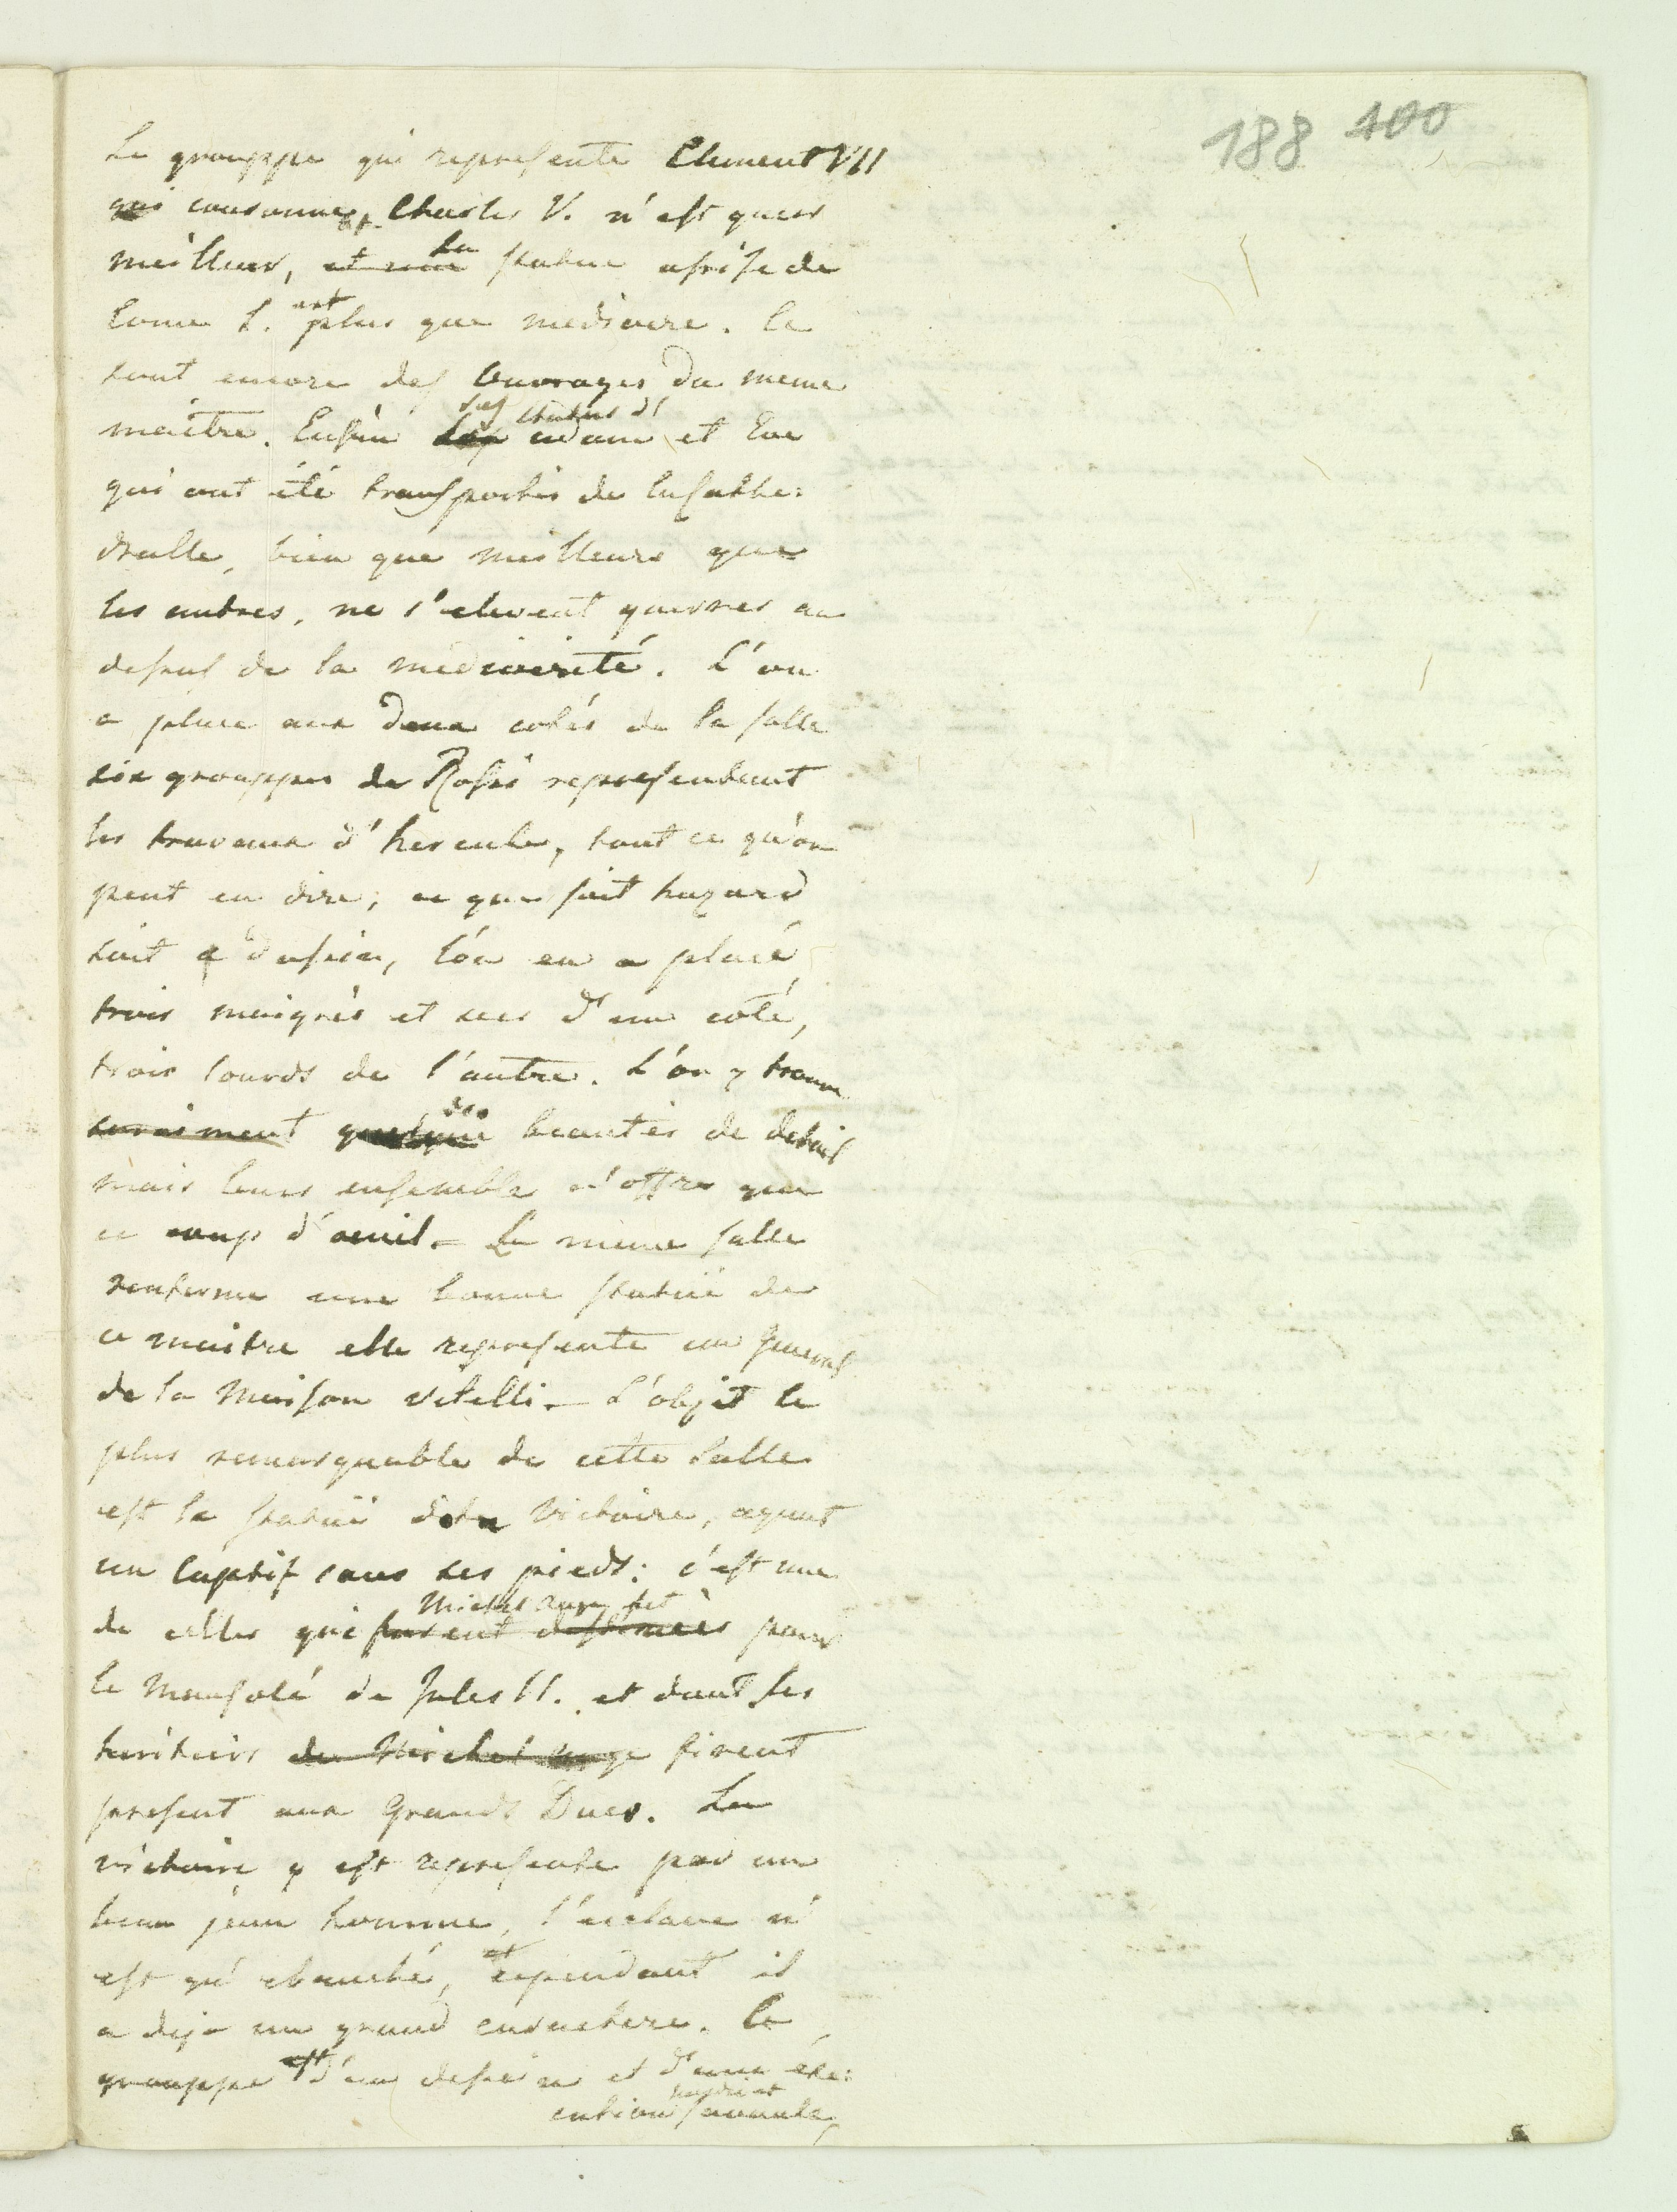 188 100
Le grouppe qui represente Clement VII
qui couronne Charles V. n'est guers
meilleur, et une la statue assise de
Come I. est plus que mediocre. Ce
sont encore des Ouvrages du meme
maitre. Enfin les statues d' adam et Eve
qui ont été transportés de la Cathe:
dralle, bien que meilleurs que
les autres, ne s'elevent guerres au
dessus de la mediocrité. L'on
a place aux deux cotés de la salle
six grouppes de Rossi representant
les travaux d'hercule, tout ce qu'on
peut en dire, ce que soit hazard
soit a dessein, l'on en a placé
trois maigres et secs d'un coté,
trois lourds de l'autre. L'on y trouve
surement quelque des beautés de details
mais leurs ensemble n'offre que
ce coup d'oeuil. La meme salle
renferme une bonne statue de
ce maitre elle represente un General
de la Maison Vitelli. L'objet le
plus remarquable de cette Salle
est la statue de la Victoire, ayant
un Captif sous ses pieds: c'est une
de celles que furent destinées Michel ange fit pour
le Mausolé de Jules II. et dont ses
heritiers de Michel ange firent
present aux Grands Ducs. La
victoire y est represente par un
beau jeun homme, l'esclave n'
est qu'ebauché, et cependant il
a deja un grand caractere. Le
grouppe est d'un dessein et d'une exé:
cution savante,